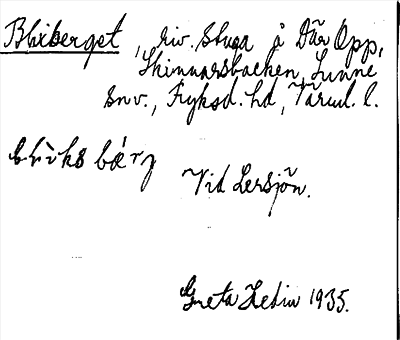 Blixberget, riv. stuga å Där Opp,
Skinnarsbacken, Sunne
snv., Fryksd. hd, Värml. l.
Vid Lersjön.
Greta Hedin 1935.